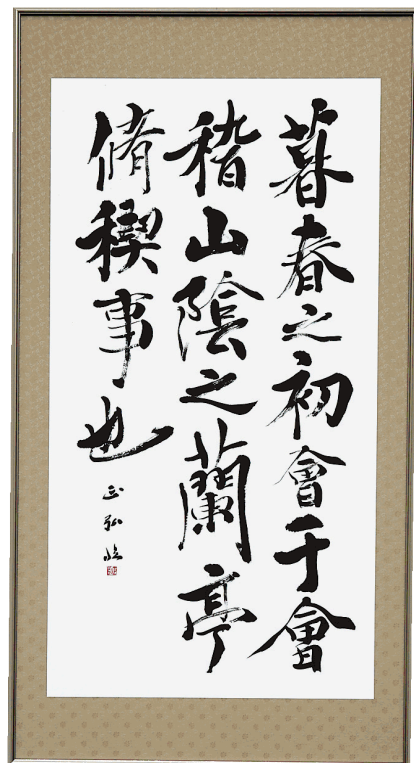 暮春之初會于會
稽山陰之蘭亭
脩稧事也
正弘臨